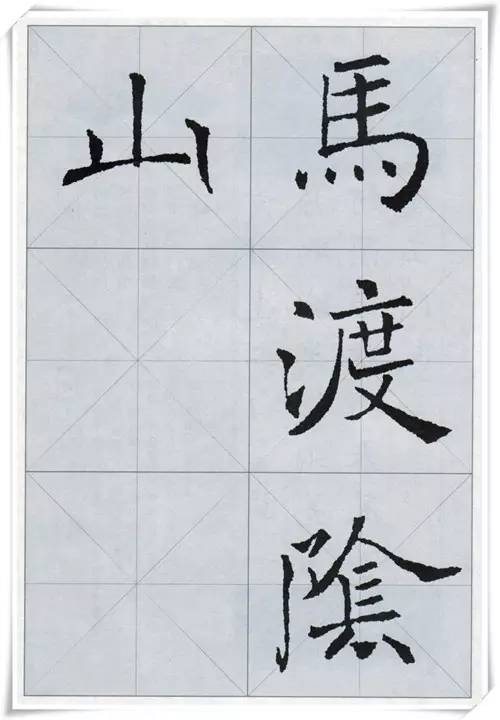 馬渡陰
山